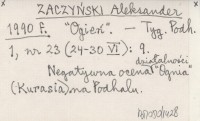 ZACZYŃSKI Aleksander
1990 r. "Ogień". – Tyg. Podh.
1, nr 23 (24-30 VI): 9.
działalności
Negatywna ocena "Ognia"
(Kurasia) na Podhalu.